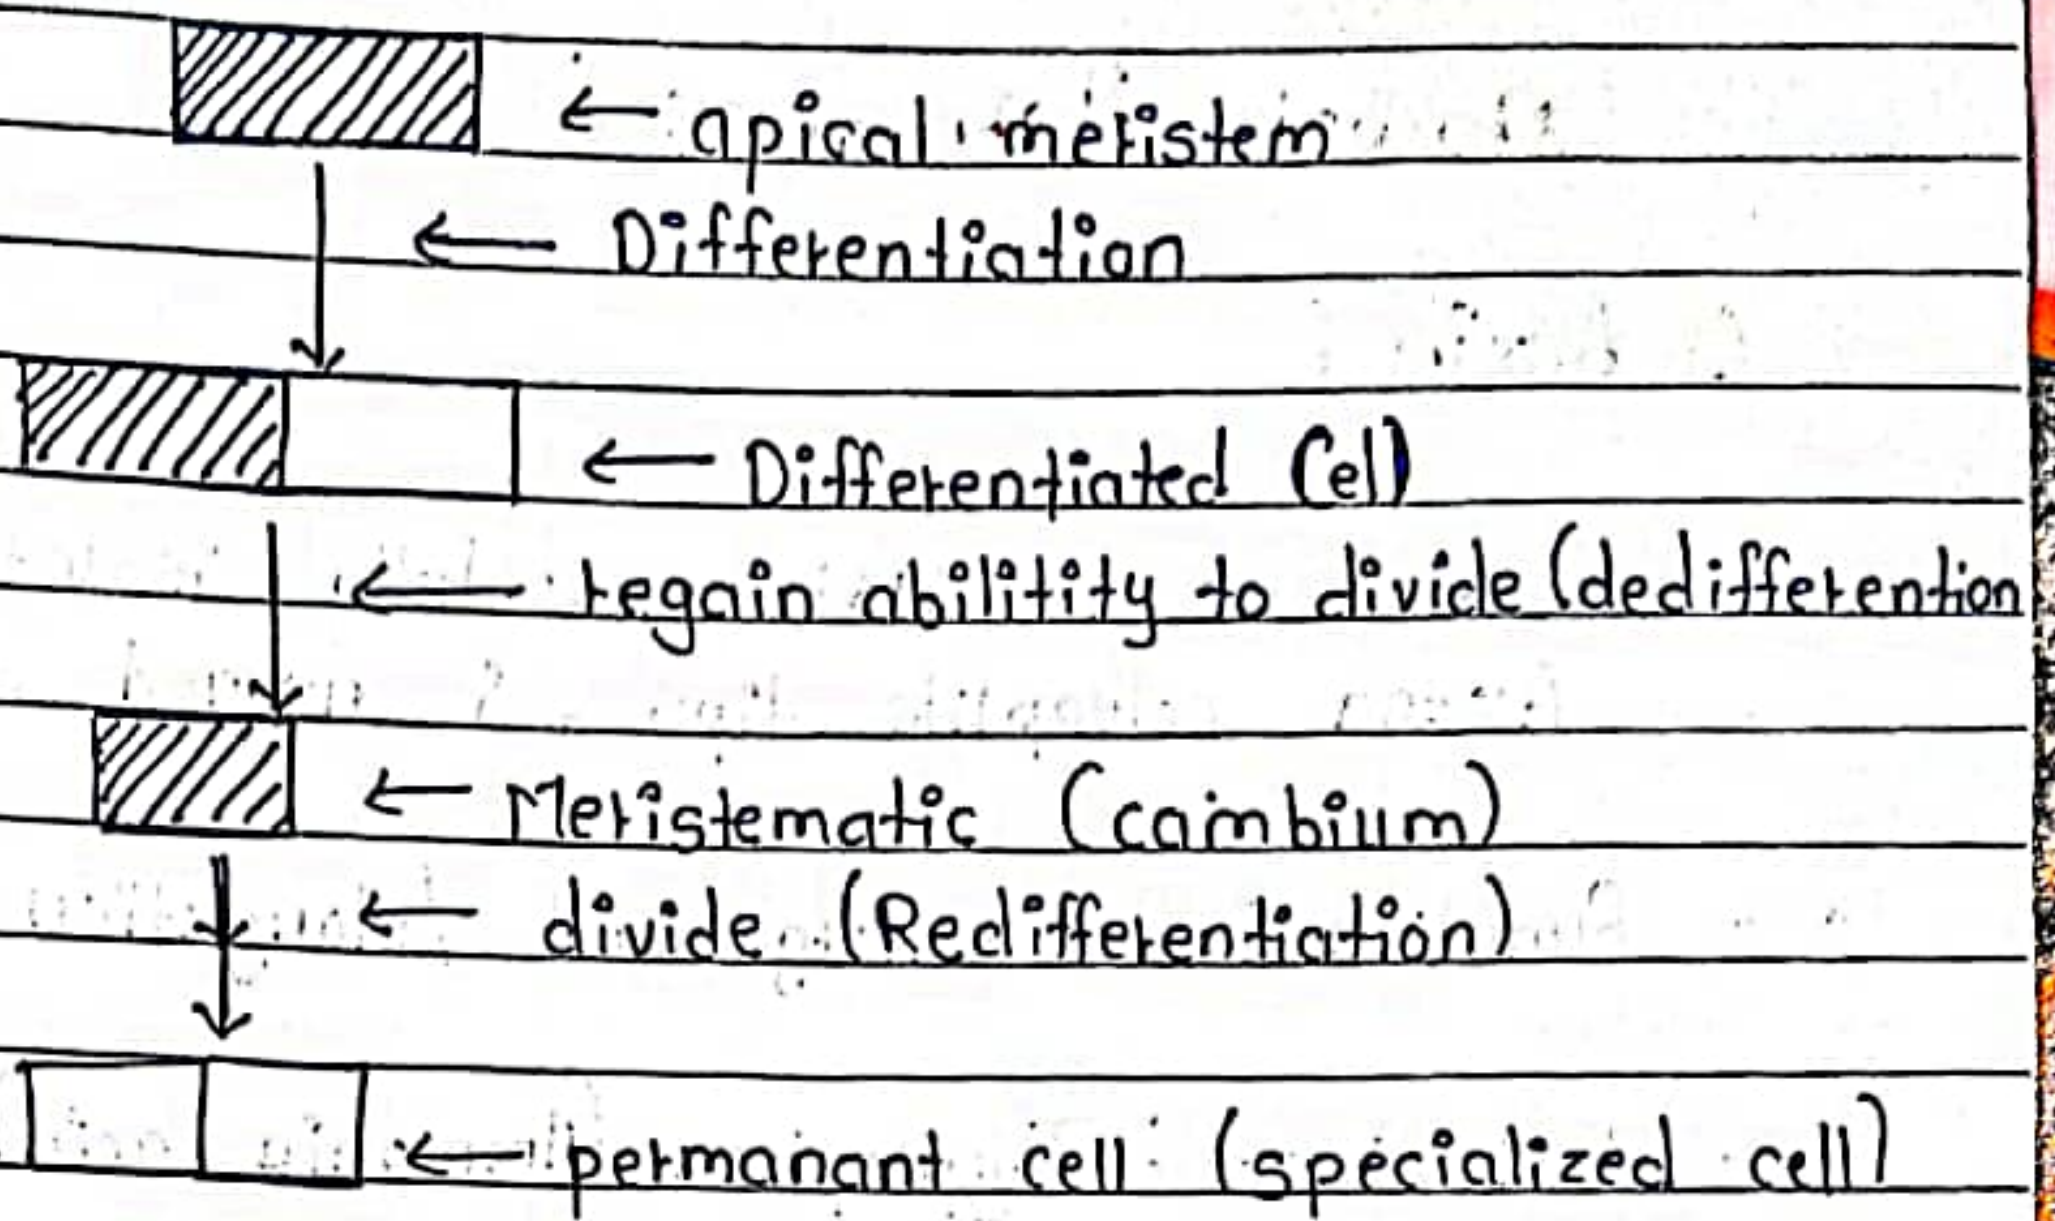 ← apical meristem
← Differentiation
← Differentiated Cell
← regain abilitity to divide (dedifferention
← Meristematic (cambium)
← divide (Redifferentiation)
← permanant cell (specialized cell)